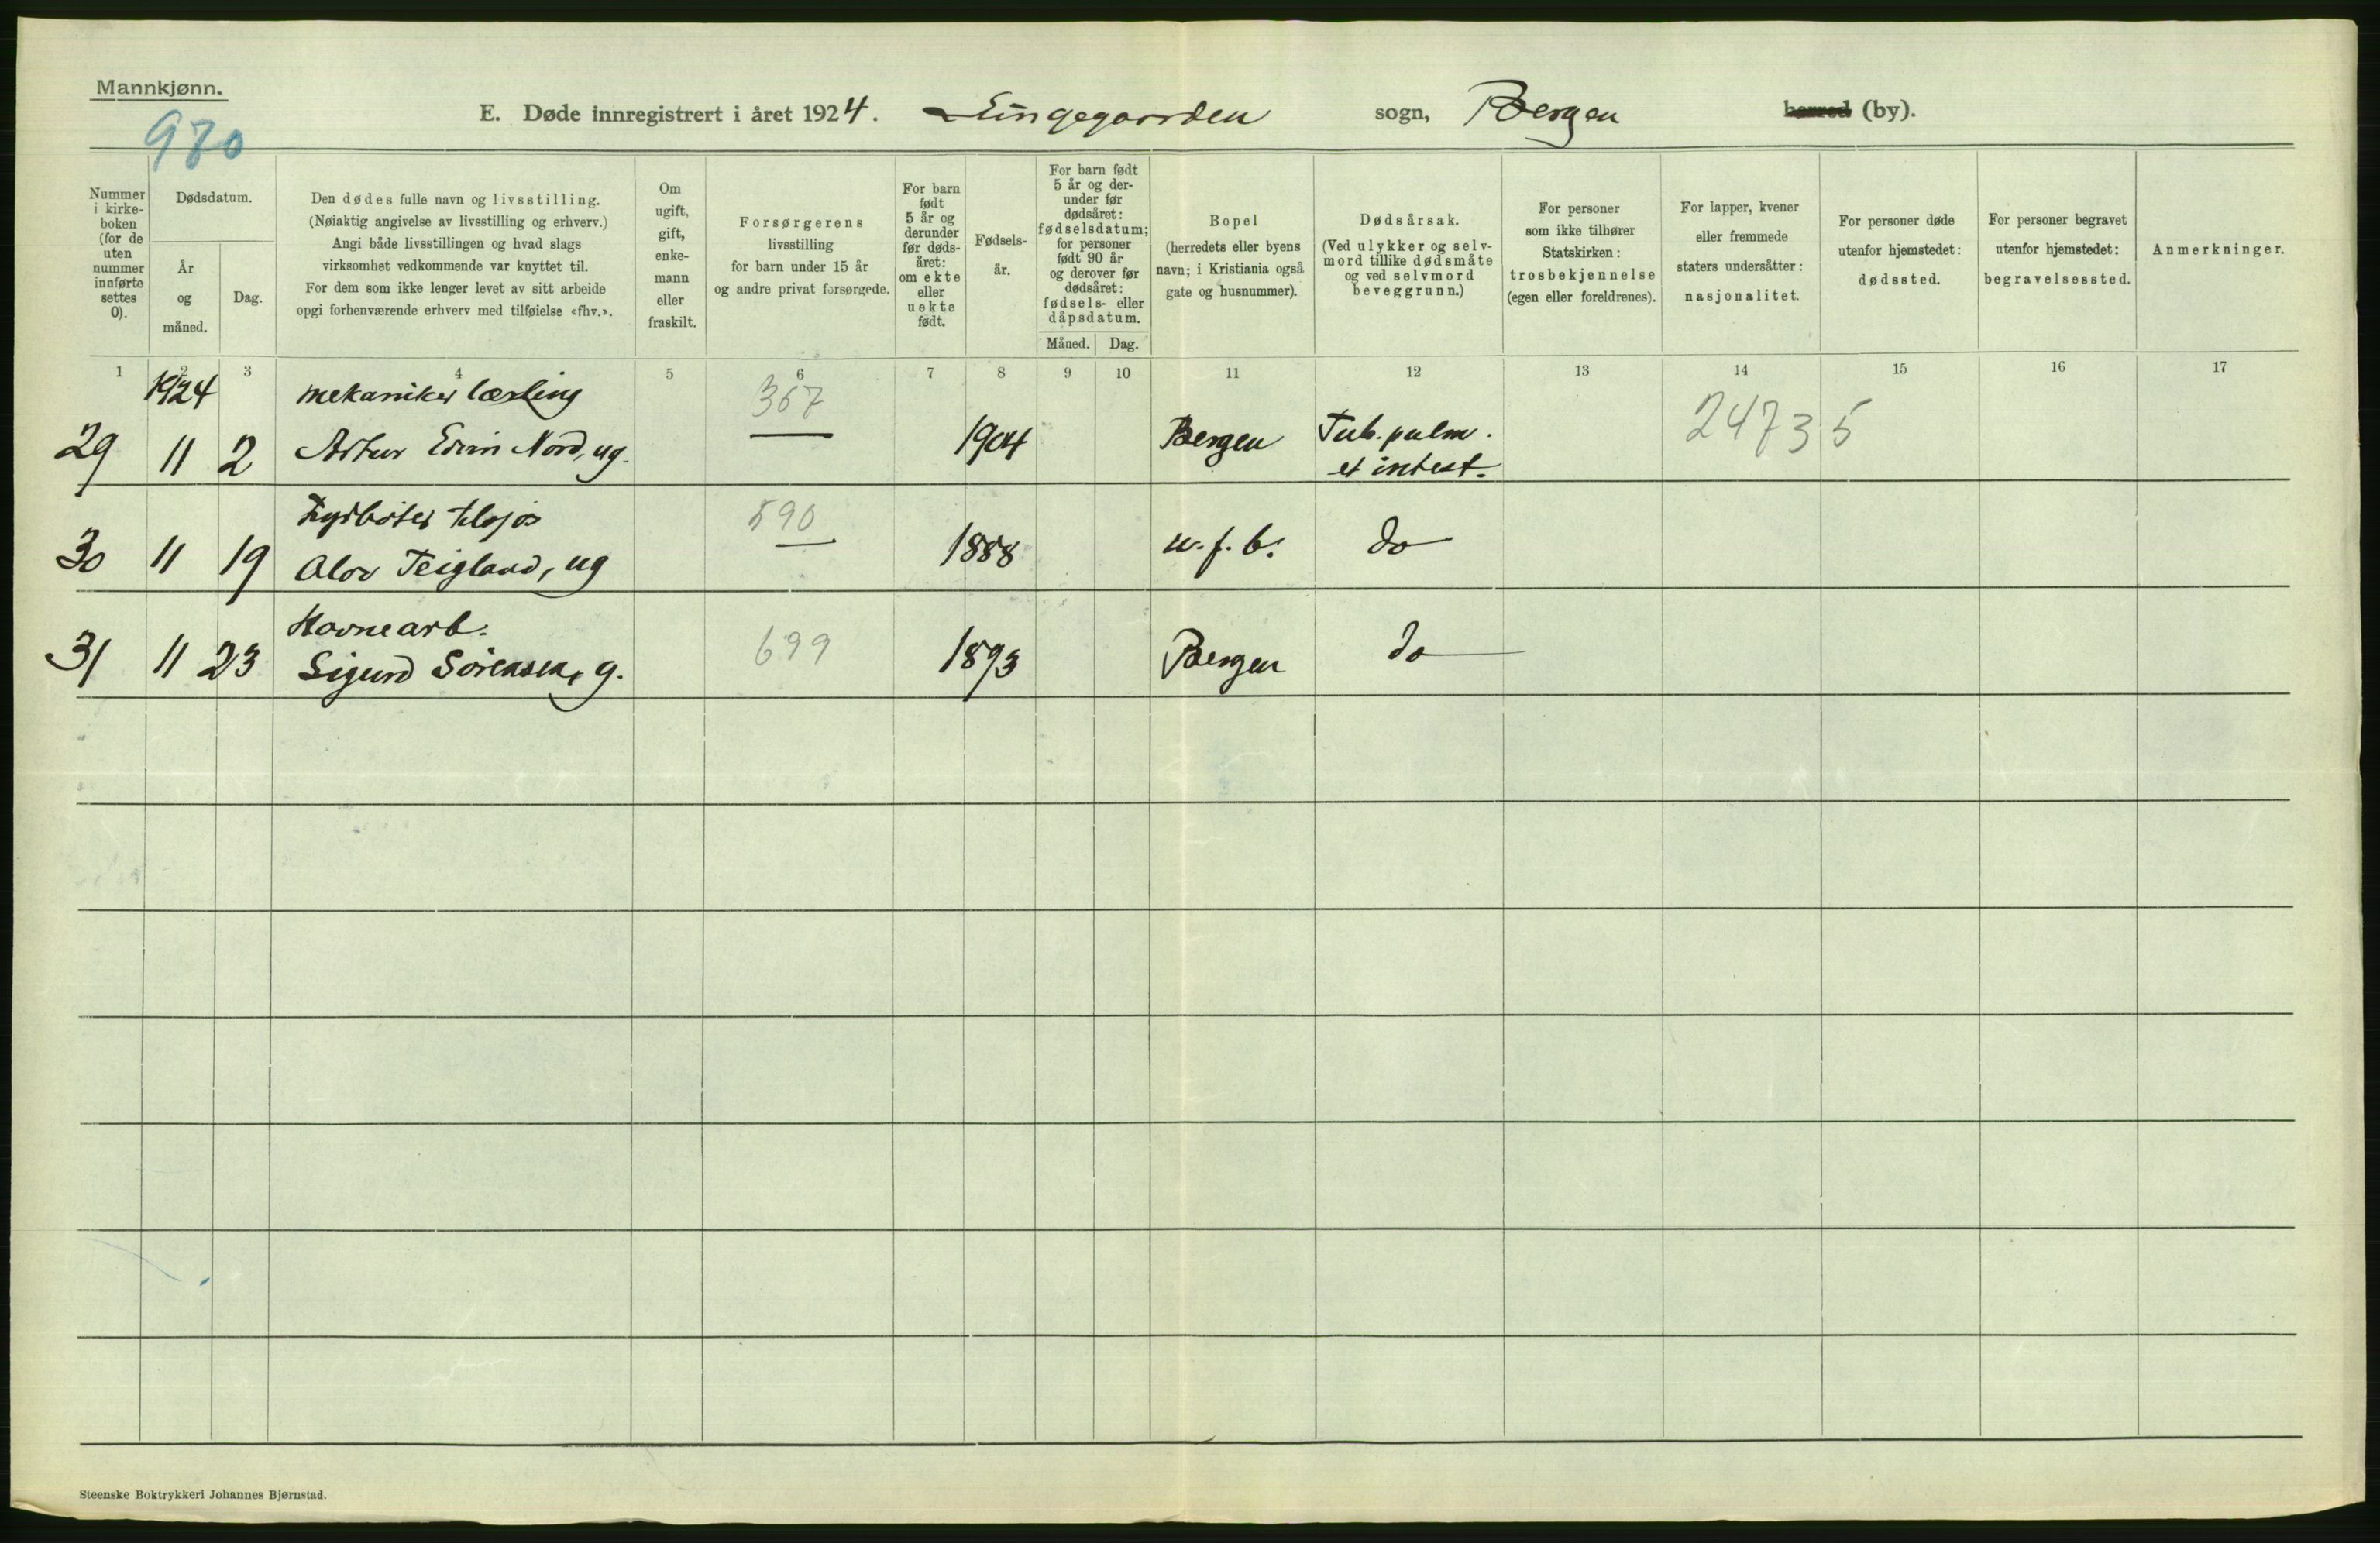 Mannkjønn.
970
E. Døde innregistrert i året 1924. Lungegaarden sogn, Bergen herred (by).
Nummer i kirke- boken (for de uten nummer innførte settes 0).
Dødsdatum.
År og måned.
Dag.
Den dødes fulle navn og livsstilling.
(Nøiaktig angivelse av livsstilling og erhverv.)
Angi både livsstillingen og hvad slags
virksomhet vedkommende var knyttet til.
For dem som ikke lenger levet av sitt arbeide
opgi forhenværende erhverv med tilføielse «fhv.».
Om ugift, gift, enke- mann eller fraskilt.
Forsørgerens
livsstilling
for barn under 15 år
og andre privat forsørgede.
For barn født 5 år og derunder før døds- året: om ekte eller uekte født.
Fødsels- år.
For barn født 5 år og der- under før dødsåret: fødselsdatum; for personer født 90 år og derover før dødsåret: fødsels- eller dåpsdatum.
Måned. Dag.
Bopel
(herredets eller byens
navn; i Kristiania også
gate og husnummer).
Dødsårsak.
(Ved ulykker og selv-
mord tillike dødsmåte
og ved selvmord
beveggrunn.)
For personer
som ikke tilhører
Statskirken:
trosbekjennelse
(egen eller foreldrenes).
For lapper, kvener
eller fremmede
staters undersåtter:
nasjonalitet.
For personer døde
utenfor hjemstedet:
dødssted.
For personer begravet
utenfor hjemstedet:
begravelsessted.
Anmerkninger.
1 2 3 4 5 6 7 8 9 10 11 12 13 14 15 16 17
1924 mekaniker lærling 367
29 11 2 Artur Edvin Nord, ug. 1904 Bergen Tub. pulm. et intest. 24735
Fyrbøter tilsjøs 590
30 11 19 Teigland, ug 1888 u. f. b. do
Havnearb. 699
31 11 23 Sigurd Sörensen, g. 1893 Bergen do
Steenske Boktrykkeri Johannes Bjørnstad.